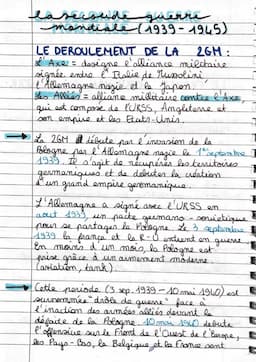 la seconde guerre
mondiale (1939-1945)
LE DEROULEMENT DE LA 2GM :
L'Axe = désigne l'alliance militaire
signée entre l'Italie de Mussolini,
l'Allemagne nazie et le Japon.
Les Alliés = alliance militaire contre l'Axe
qui est composée de l'URSS, Angleterre et
son empire et les Etats-Unis.
La 2GM débute par l'invasion de la
Pologne par l'Allemagne nazie le 1er septembre
1939. Il s'agit de récupérer les territoires
germaniques et de débuter la création
d'un grand empire germanique.
L'Allemagne a signé avec l'URSS en
août 1939, un pacte germano-soviétique
pour se partager la Pologne. Le 3 septembre
1939 la france et le R-U entrent en guerre
En moins d'un mois, la Pologne est
prise grâce à un armement moderne
(aviation, tank).
Cette période (3 sep. 1939-10 mai 1940) est
surnommée "drôle de guerre" face à
l'inaction des armées alliés devant la
défaite de la Pologne. 10 mai 1940 débute
l'offensive sur le front de l'Ouest de l'Europe,
les Pays-Bas, la Belgique et la France sont